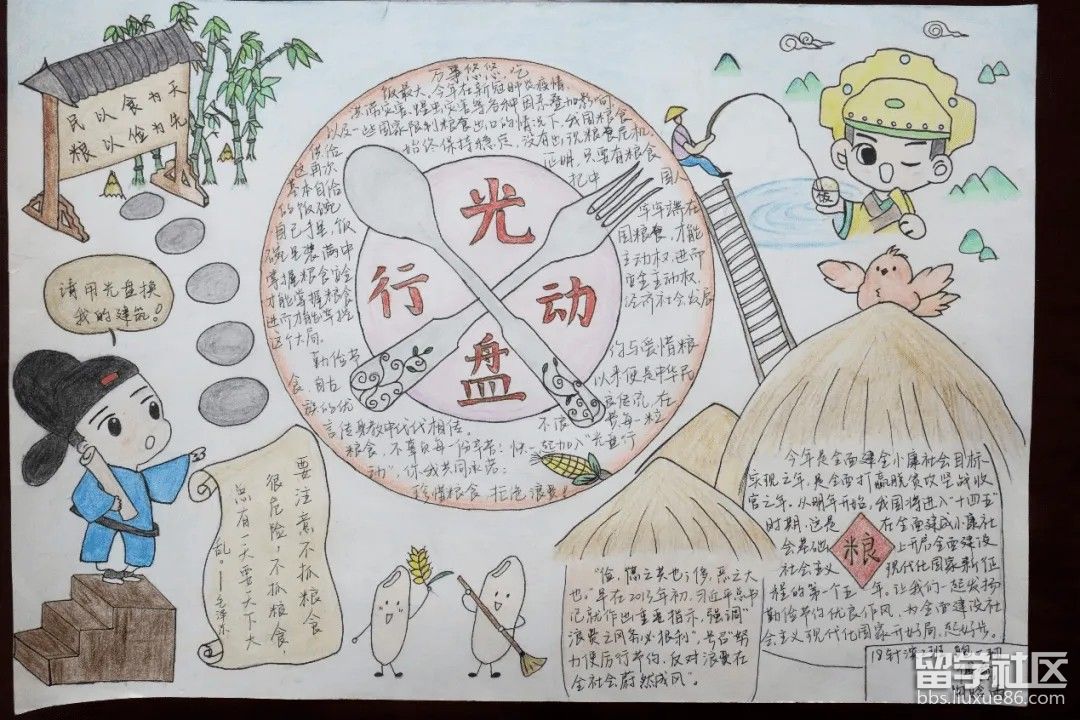 民以食为天
粮以俭为先
请用光盘换
我的建筑！
光
行
动
盘
万事悠悠，吃
饭最大。今年在新冠肺炎疫情、
洪涝灾害、蝗虫灾害等各种因素叠加影响
以及一些国家限制粮食出口的情况下，我国粮食
始终保持稳定，没有出现粮食危机
供给
这再次
证明，只要有粮食
基本自给
的饭碗
自己手里，饭
碗里装满中
掌握粮食安全
才能掌握粮食
进而才能掌控
这个大局。
国人
牢牢端在
国粮食，才能
主动权，进而
安全主动权，
经济社会发展
勤俭节
食，自古
族的优
约与爱惜粮
以来便是中华民
良传统，在
言传身教中代代相传。
不浪
费每一粒
粮食，不辜负每一份辛劳；快
一起加入“光盘行
动”，你我共同承诺：
珍惜粮食，拒绝浪费！
要注意不抓粮食
很危险，不抓粮食
总有一天要天下大
乱。
粮
今年是全面建全小康社会目标
实现之年，是全面打赢脱贫攻坚战收
官之年。从明年开始，我国将进入“十四五”
时期，这是
在全面建成小康社
会基础
上开启全面建设
社会主义
现代化国家新征
程的第一个五年。让我们一起发扬
勤俭节约优良作风，为全面建设社
会主义现代化国家开好局、起好步。
“俭，德之共也；侈，恶之大
也。”早在2013年初，习近平总书
记就作出重要指示，强调“
浪费之风务必狠刹”，号召“努
力使厉行节约、反对浪费在
全社会蔚然成风”。
留学社区
bbs.liuxue86.com